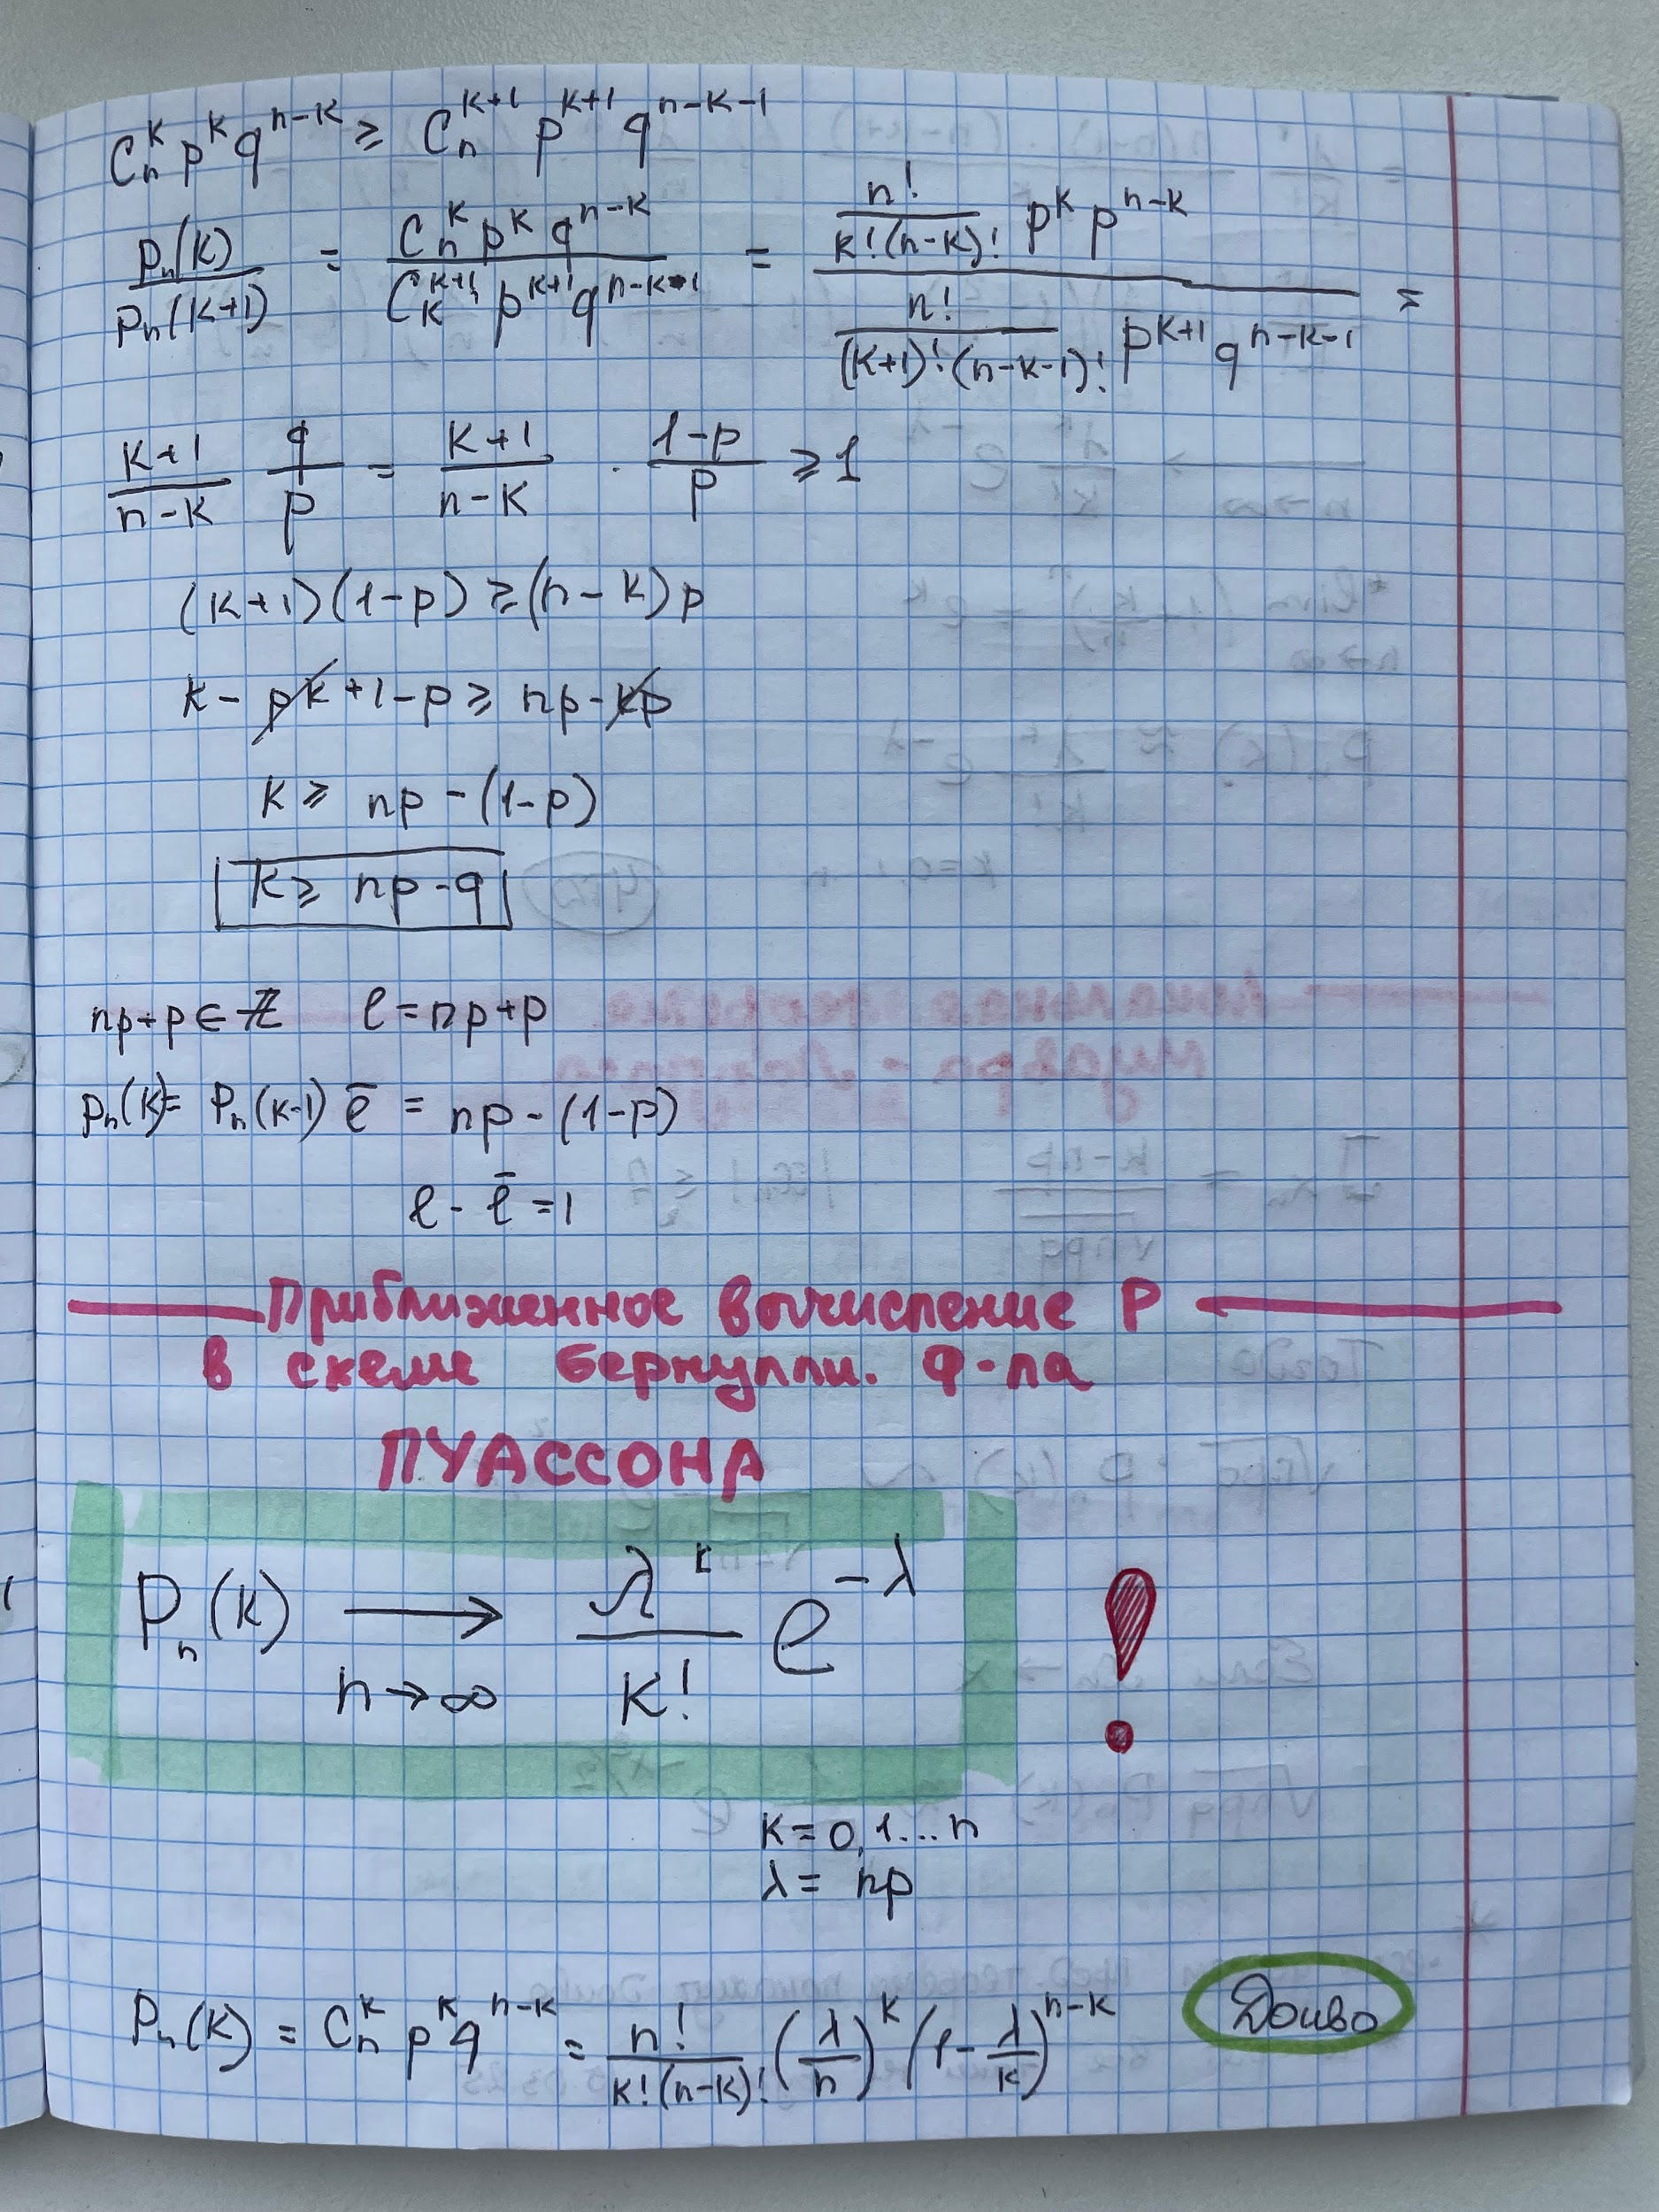 Cₙᵏ pᵏ qⁿ⁻ᵏ ≥ Cₙᵏ⁺¹ pᵏ⁺¹ qⁿ⁻ᵏ⁻¹
Pₙ(k)/Pₙ(k+1) = (Cₙᵏ pᵏ qⁿ⁻ᵏ)/(Cₖᵏ⁺¹ pᵏ⁺¹ qⁿ⁻ᵏ⁻¹) = (n!/(k!(n-k)!) pᵏ pⁿ⁻ᵏ)/(n!/((k+1)!(n-k-1)!) pᵏ⁺¹ qⁿ⁻ᵏ⁻¹) =
(k+1)/(n-k) q/p = (k+1)/(n-k) · (1-p)/p ≥ 1
(k+1)(1-p) ≥ (n-k)p
k - pk + 1 - p ≥ np - kp
k ≥ np - (1-p)
k ≥ np - q
np+p ∈ ℤ ℓ = np+p
pₙ(k) = Pₙ(k-1) ℓ̄ = np - (1-p)
ℓ - ℓ̄ = 1
Приближенное вычисление P
в схеме Бернулли. Ф-ла
ПУАССОНА
Pₙ(k) → λᵏ/k! e^(-λ) !
n→∞
k = 0,1...n
λ = np
Pₙ(k) = Cₙᵏ pᵏ qⁿ⁻ᵏ = n!/(k!(n-k)!) (λ/n)ᵏ (1-λ/k)ⁿ⁻ᵏ